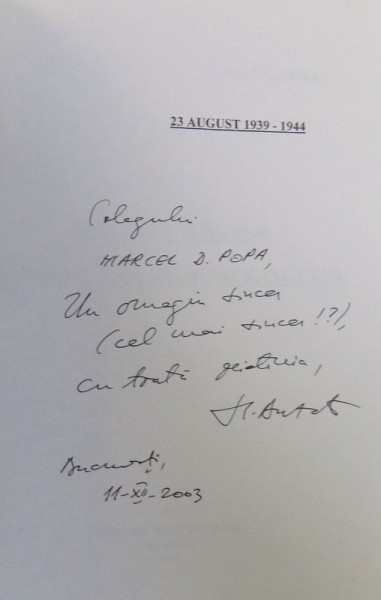 23 AUGUST 1939 - 1944
Colegului
MARCEL D. POPA,
Un omagiu sincer
(cel mai sincer!?),
cu toată prietenia,
București,
11-XII-2003